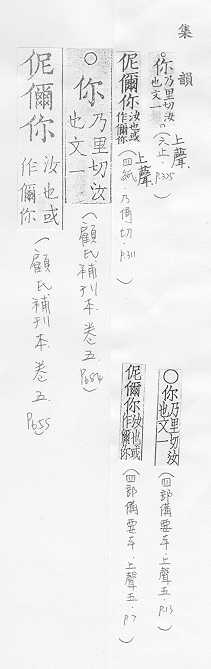 集韻
○你乃里切汝也文一
上聲(六止．P.325
伲儞你汝也或作儞你
上聲(四紙．乃倚切．P.311
○你乃里切汝也文一
(顧氏補刊本．卷五．P654
伲儞你汝也或作儞你
(顧氏補刊本．卷五．P655
○你乃里切汝也文一
(四部備要本．上聲五．P.13)
伲儞你汝也或作儞你
(四部備要本．上聲五．P.7)